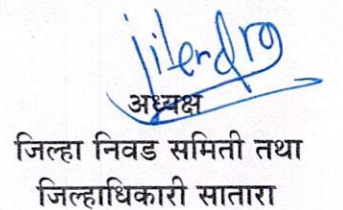 jitendra
अध्यक्ष
जिल्हा निवड समिती तथा
जिल्हाधिकारी सातारा